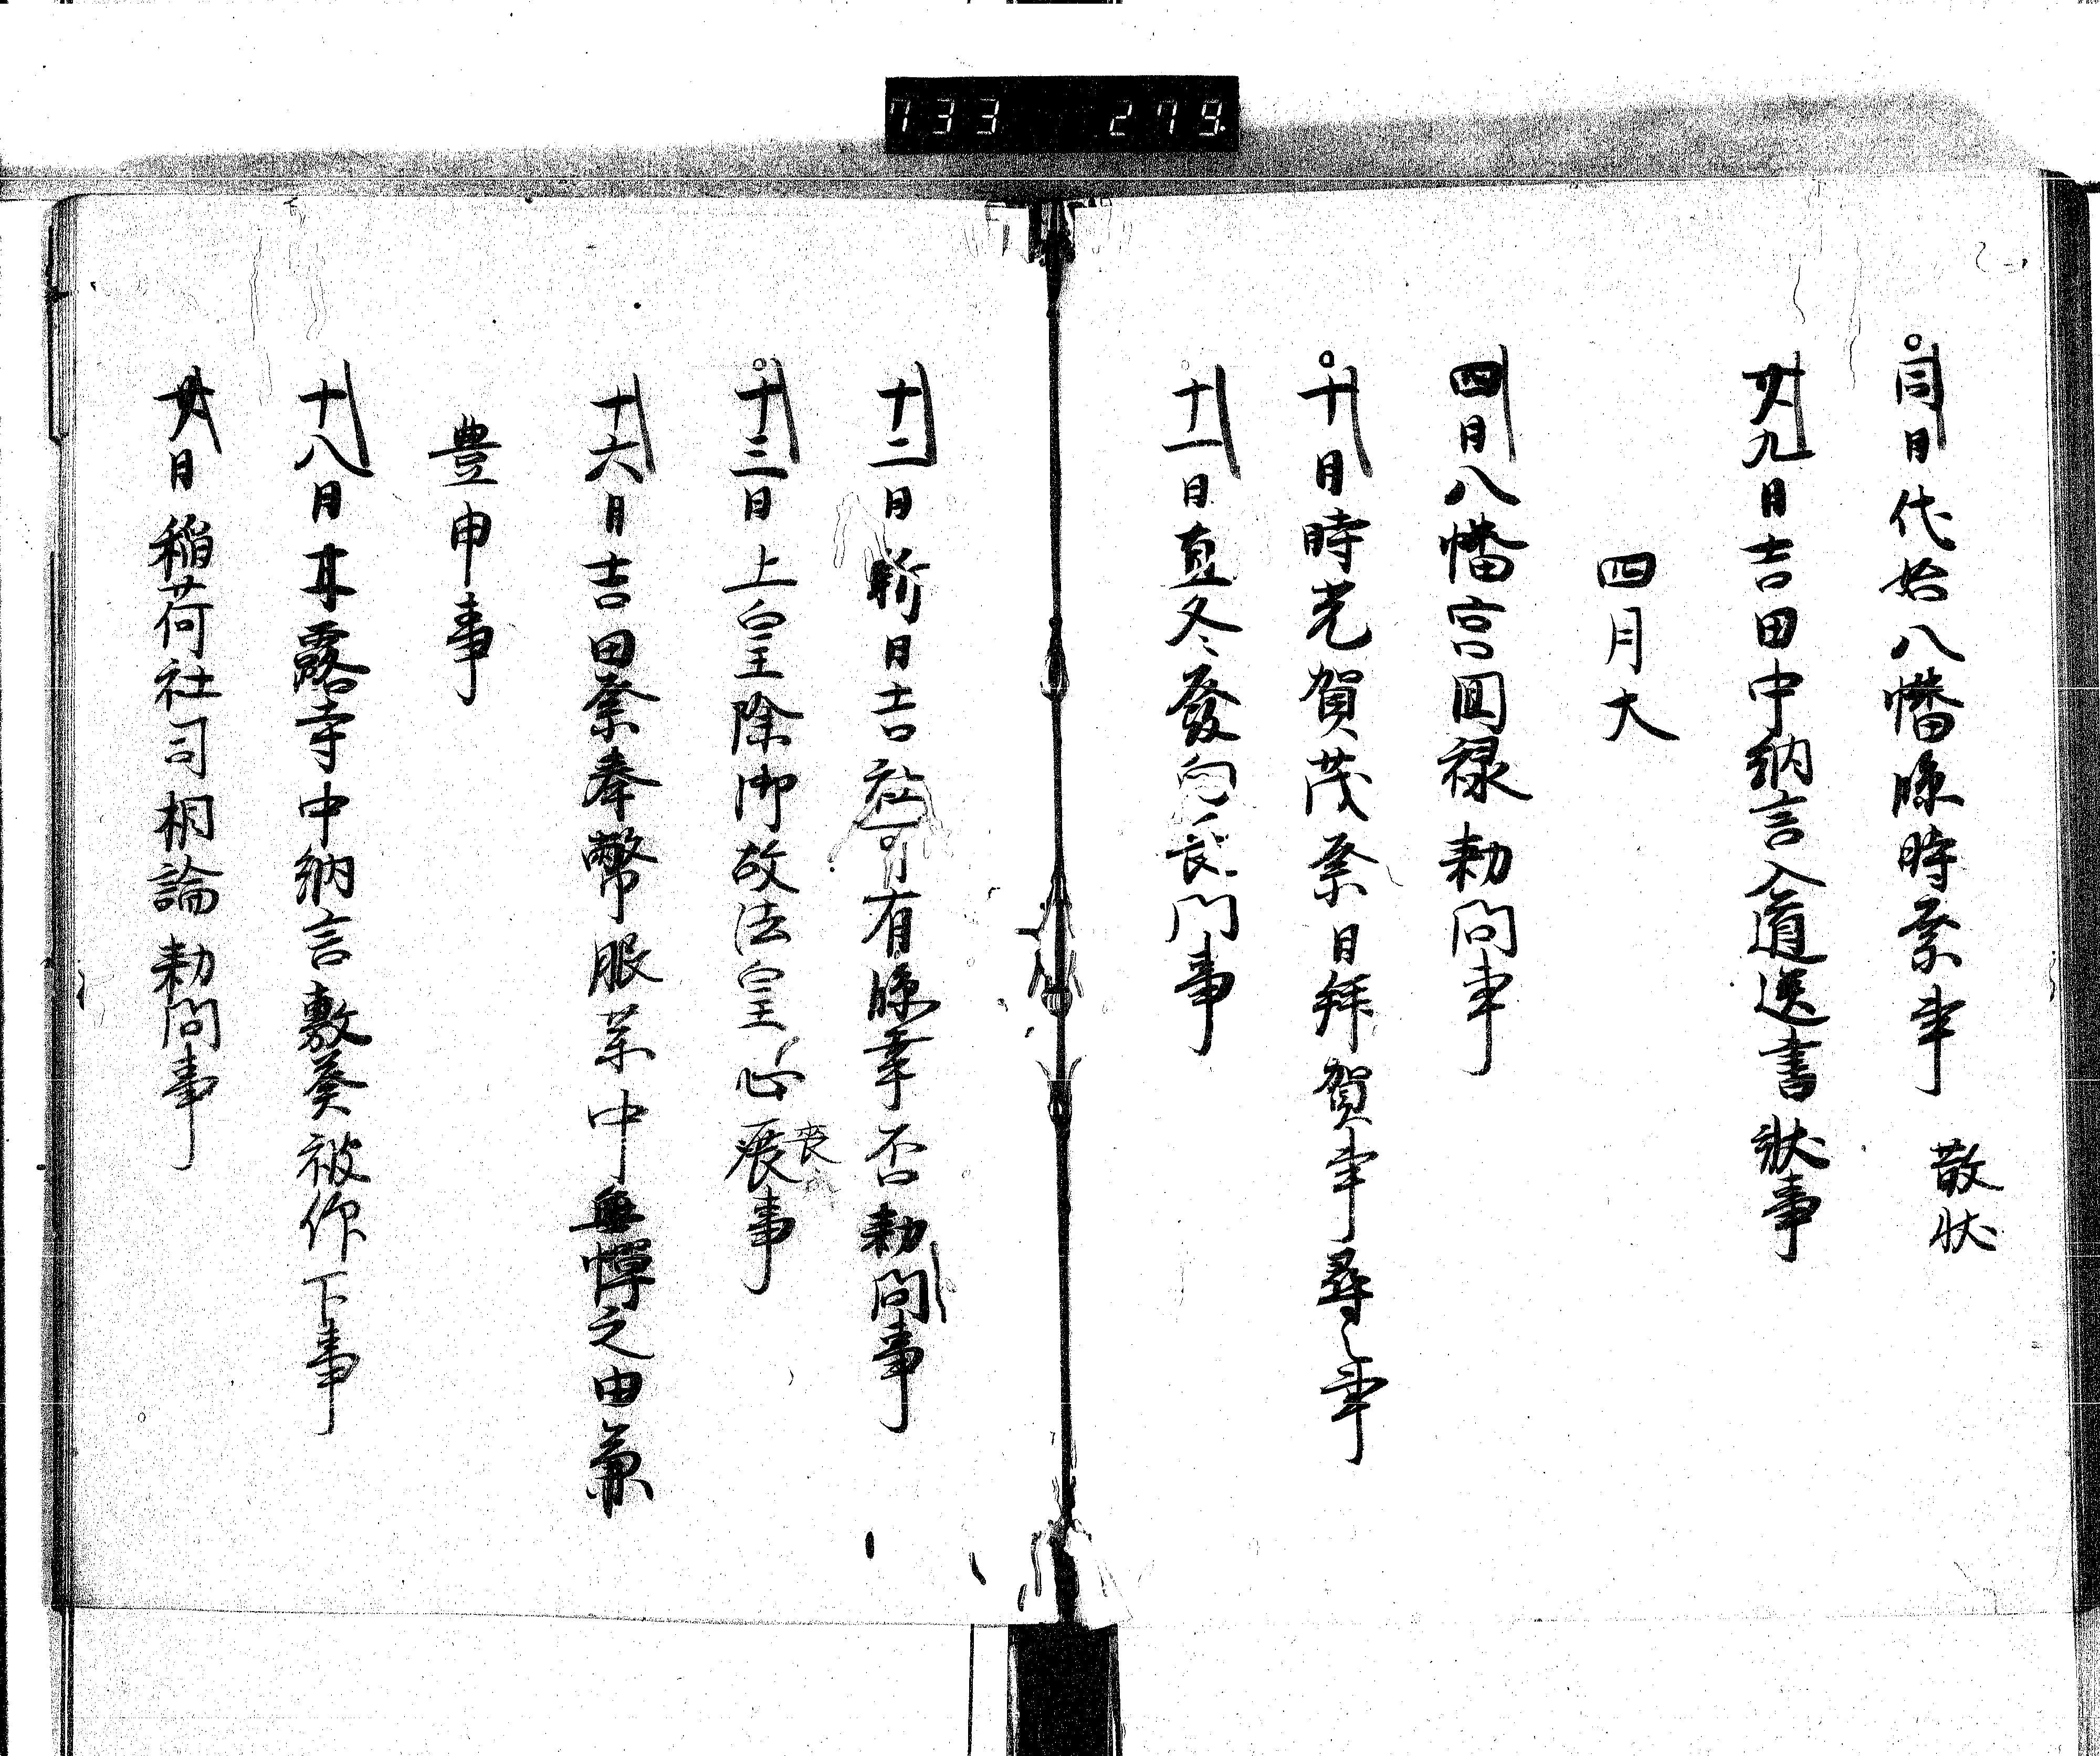 733 279
同日代始八幡臨時祭事 散状
廿九日吉田中納言入道送書状事
四月大
四日八幡宮回禄勅問事
十日時光賀茂祭日拝賀事尋之事
十一日直冬発向長門事
十二日新日吉社可有臨幸否勅問事
十三日上皇除御故法皇心喪喪事
十六日吉田祭奉幣服業中無憚之由兼
豊申事
十八日甘露寺中納言敷奏被仰下事
廿日稲荷社司相論勅問事